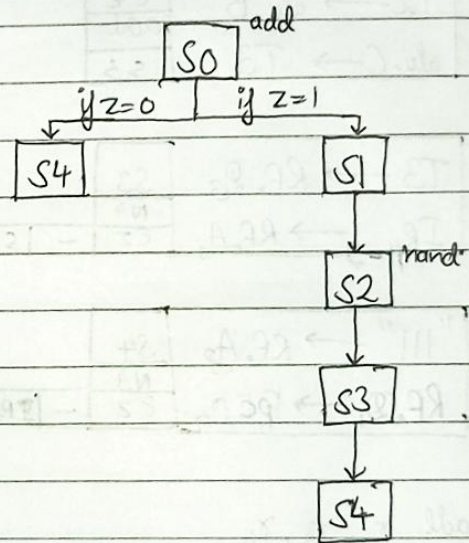 add
S0
if z=0 if z=1
S4 S1
nand
S2
S3
S4